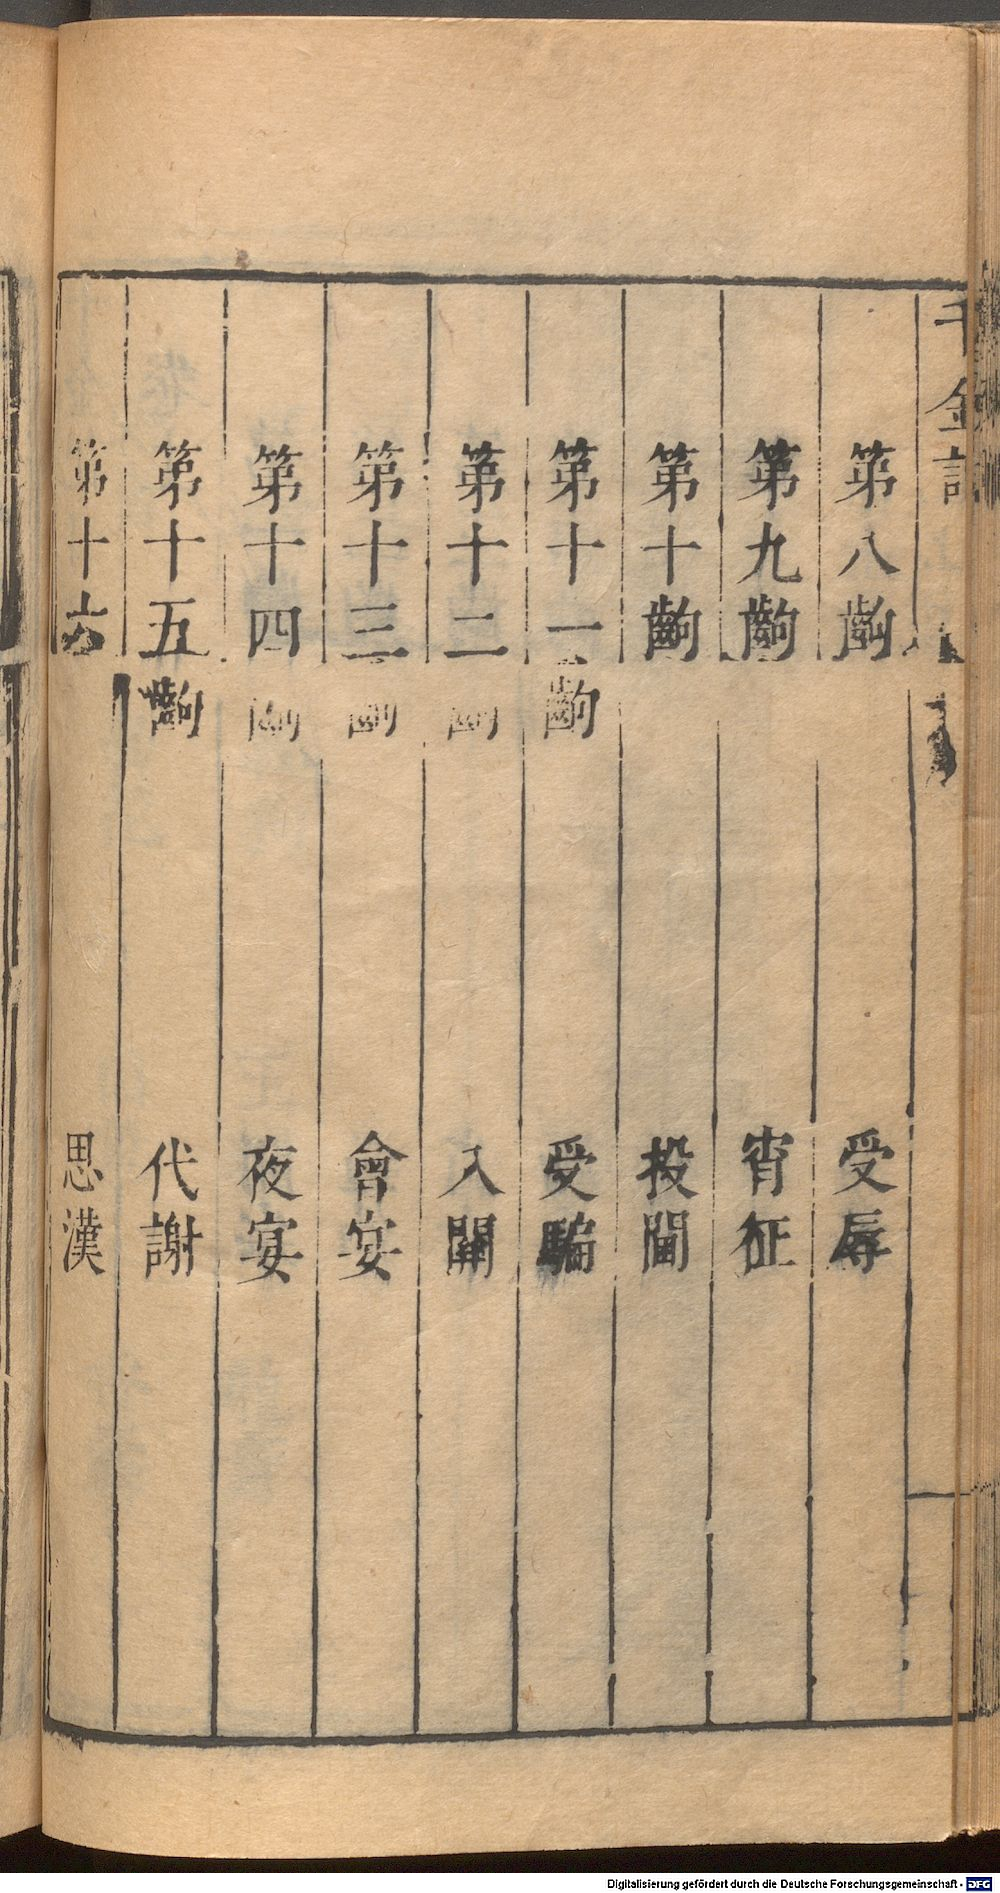 千金記
第八齣 受辱
第九齣 宵征
第十齣 投閫
第十一齣 受騙
第十二齣 入關
第十三齣 會宴
第十四齣 夜宴
第十五齣 代謝
第十六 思漢
Digitalisierung gefördert durch die Deutsche Forschungsgemeinschaft - DFG